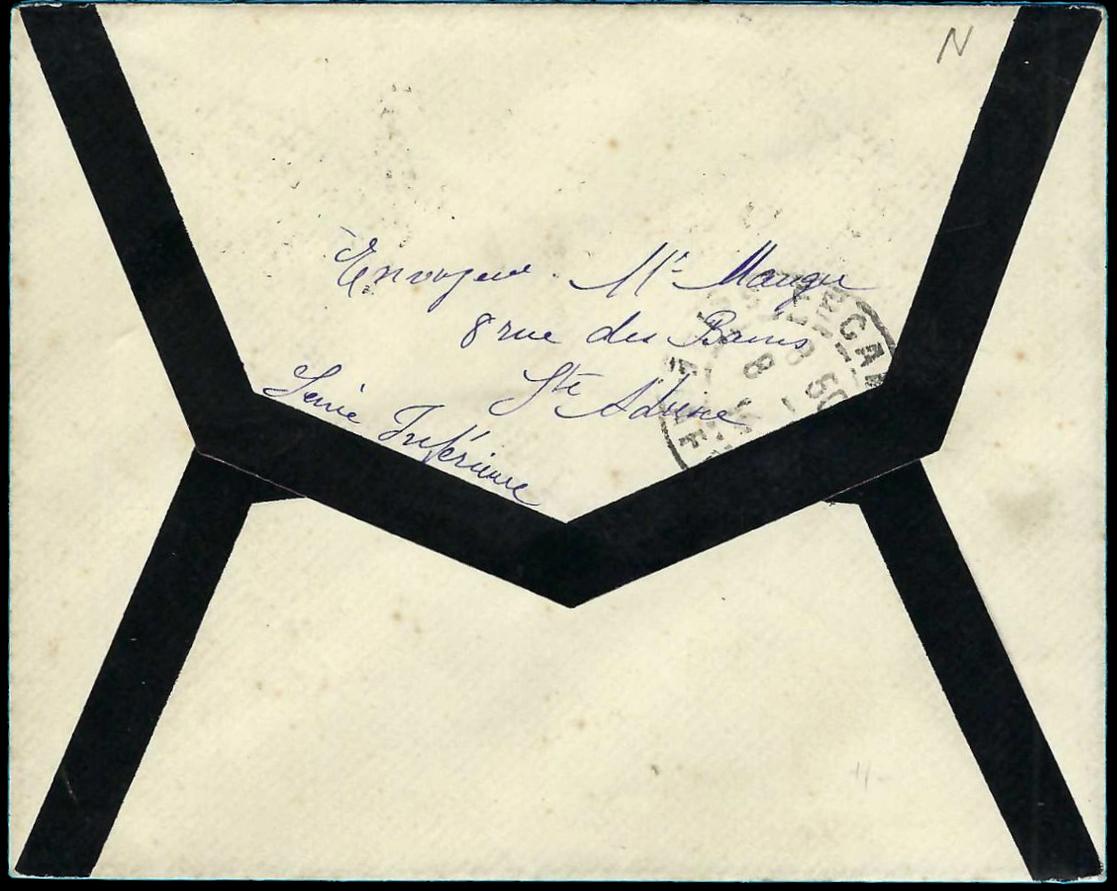 N
Envoyeur Mr Maugé
8 rue des Bains
Ste Adresse
Seine Inférieure